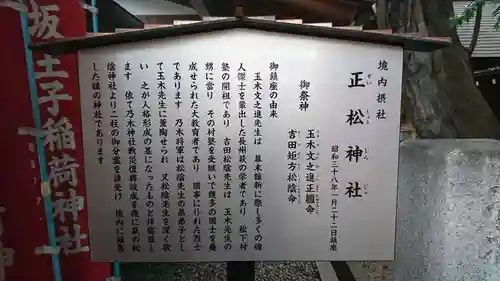 境内摂社
正松神社
せいしょうじんじゃ
昭和三十八年一月二十二日鎮座
御祭神
玉木文之進正韞命
吉田矩方松陰命
御鎮座の由来
玉木文之進先生は 幕末維新に際し多くの偉
人傑士を輩出した長州萩の学者であり 松下村
塾の開祖であり 吉田松陰先生は 玉木先生の
甥に当り その村塾を受継いで幾多の国士を養
成せられた大教育者であり 國事に仆れた烈士
であります 乃木将軍は松陰先生の弟弟子とし
て玉木先生に薫陶せられ 又松陰先生を深く欽
い 之が人格形成の基になったものと拝察致し
ます 依て乃木神社戦災復興竣成を機に萩の松
陰神社より二柱の御分霊を請受け 境内に鎮斎
した縁の神社であります
坂玉子稲荷神社